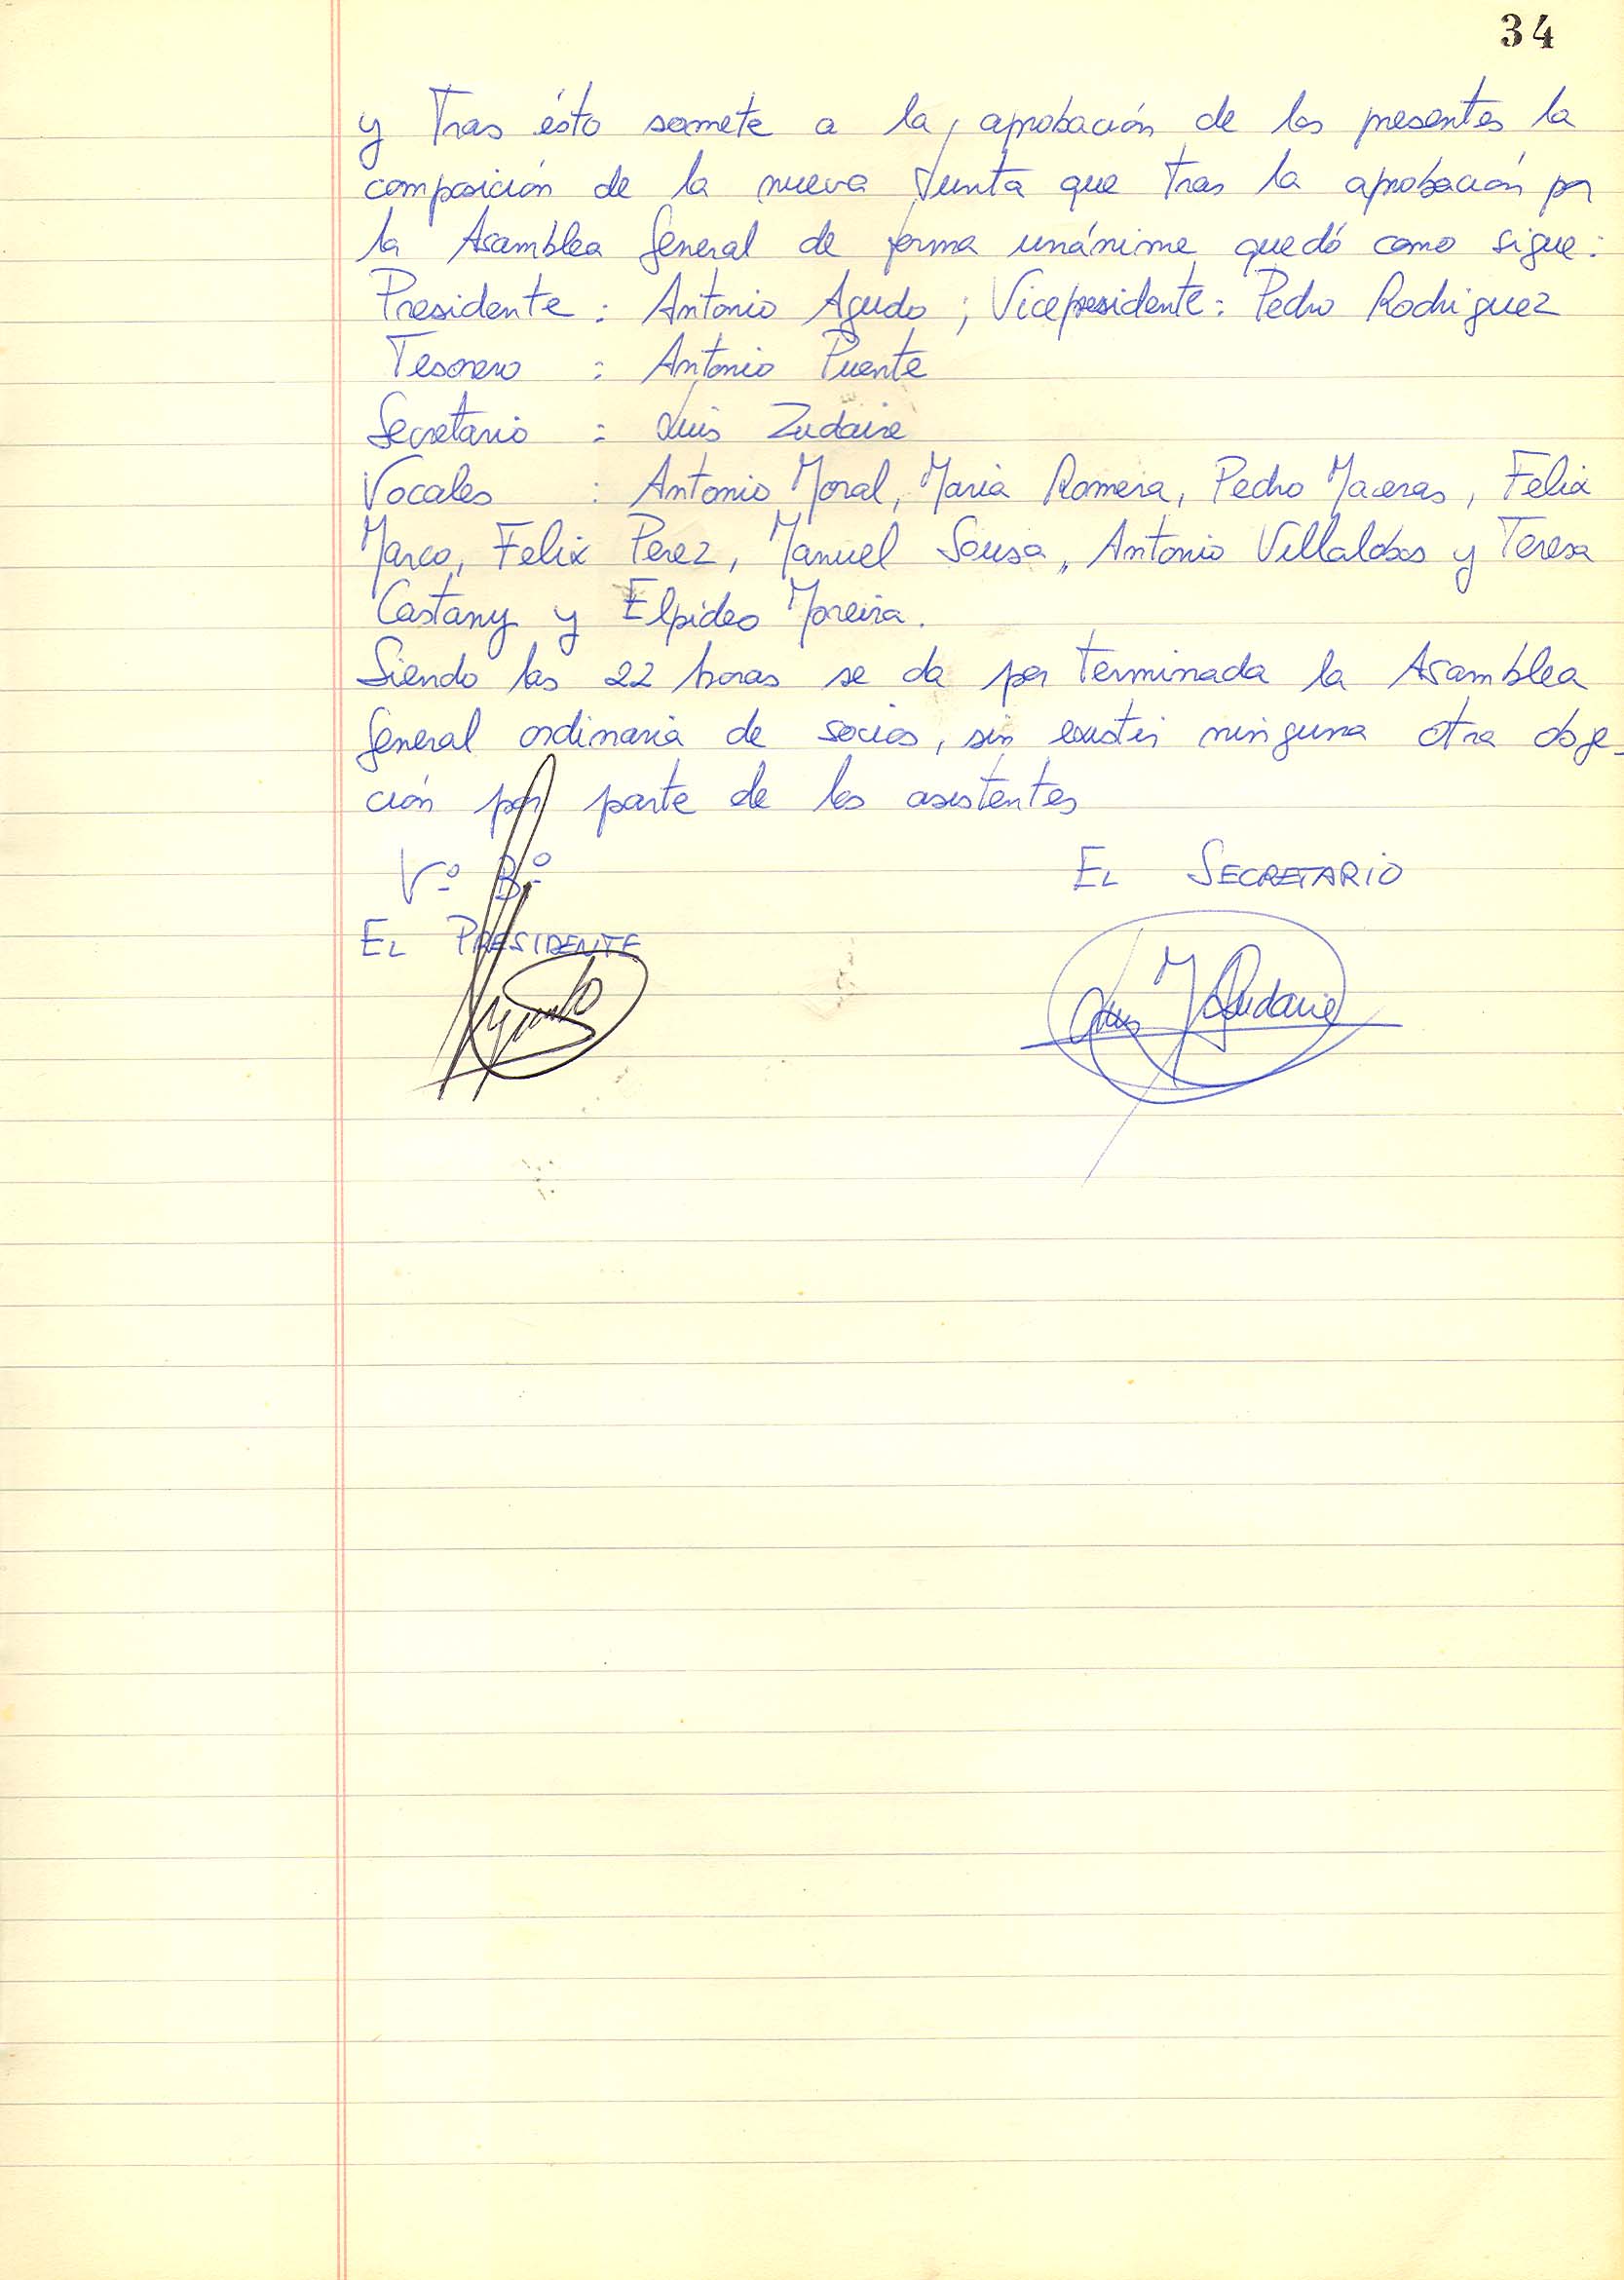 34
y tras ésto somete a la aprobación de los presentes la
composición de la nueva Junta que tras la aprobación por
la Asamblea General de forma unánime quedó como sigue:
Presidente : Antonio Agudo ; Vicepresidente : Pedro Rodriguez
Tesorero : Antonio Puente
Secretario : Luis Zudaire
Vocales : Antonio Moral, Maria Romera, Pedro Maceras, Felix
Marco, Felix Perez, Manuel Sousa, Antonio Villalobos y Teresa
Castany y Elpideo Moreira.
Siendo las 22 horas se da por terminada la Asamblea
General ordinaria de socios, sin existir ninguna otra obje-
ción por parte de los asistentes
Vº Bº EL SECRETARIO
EL PRESIDENTE
Agudo Luis M Zudaire